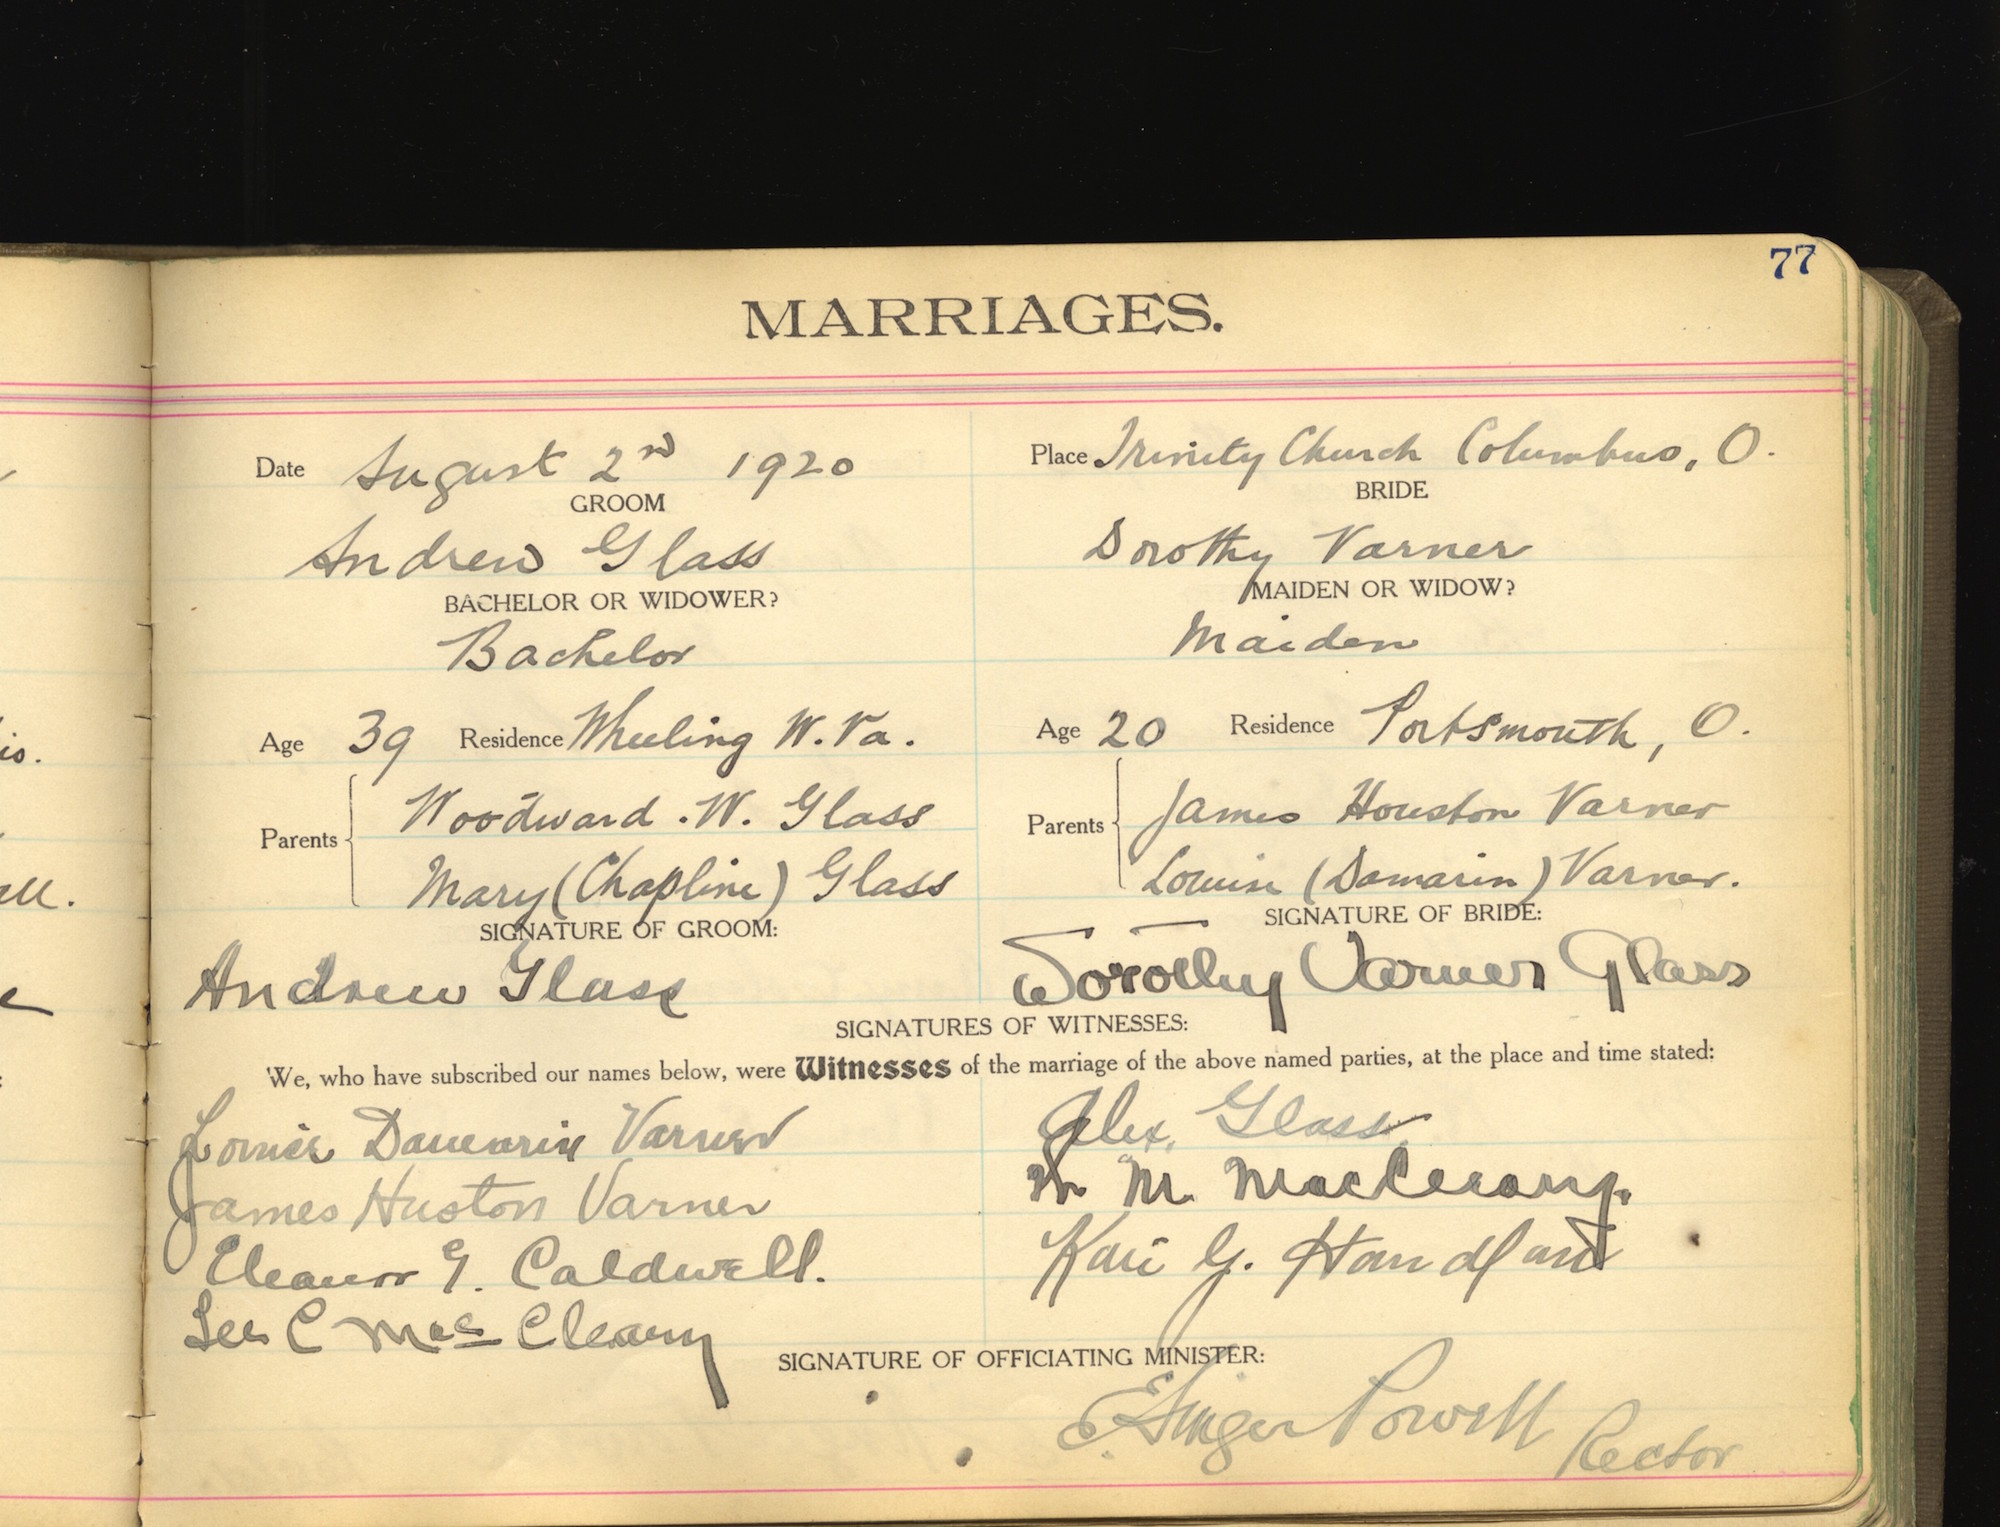 77
MARRIAGES.
Date August 2nd 1920
Place Trinity Church Columbus, O.
GROOM
BRIDE
Andrew Glass
Dorothy Varner
BACHELOR OR WIDOWER?
MAIDEN OR WIDOW?
Bachelor
Maiden
Age 39 Residence Wheeling W. Va.
Age 20 Residence Portsmouth, O.
Parents
Woodward .W. Glass
Mary (Chapline) Glass
Parents
James Houston Varner
Louise (Damarin) Varner.
SIGNATURE OF GROOM:
SIGNATURE OF BRIDE:
Andrew Glass
Dorothy Varner Glass
SIGNATURES OF WITNESSES:
We, who have subscribed our names below, were Witnesses of the marriage of the above named parties, at the place and time stated:
Louise Damarin Varner
Alex. Glass
James Huston Varner
M.
Eleanor G. Caldwell.
G.
Lee C Mac Cleary
SIGNATURE OF OFFICIATING MINISTER:
Powell Rector
is.
all.